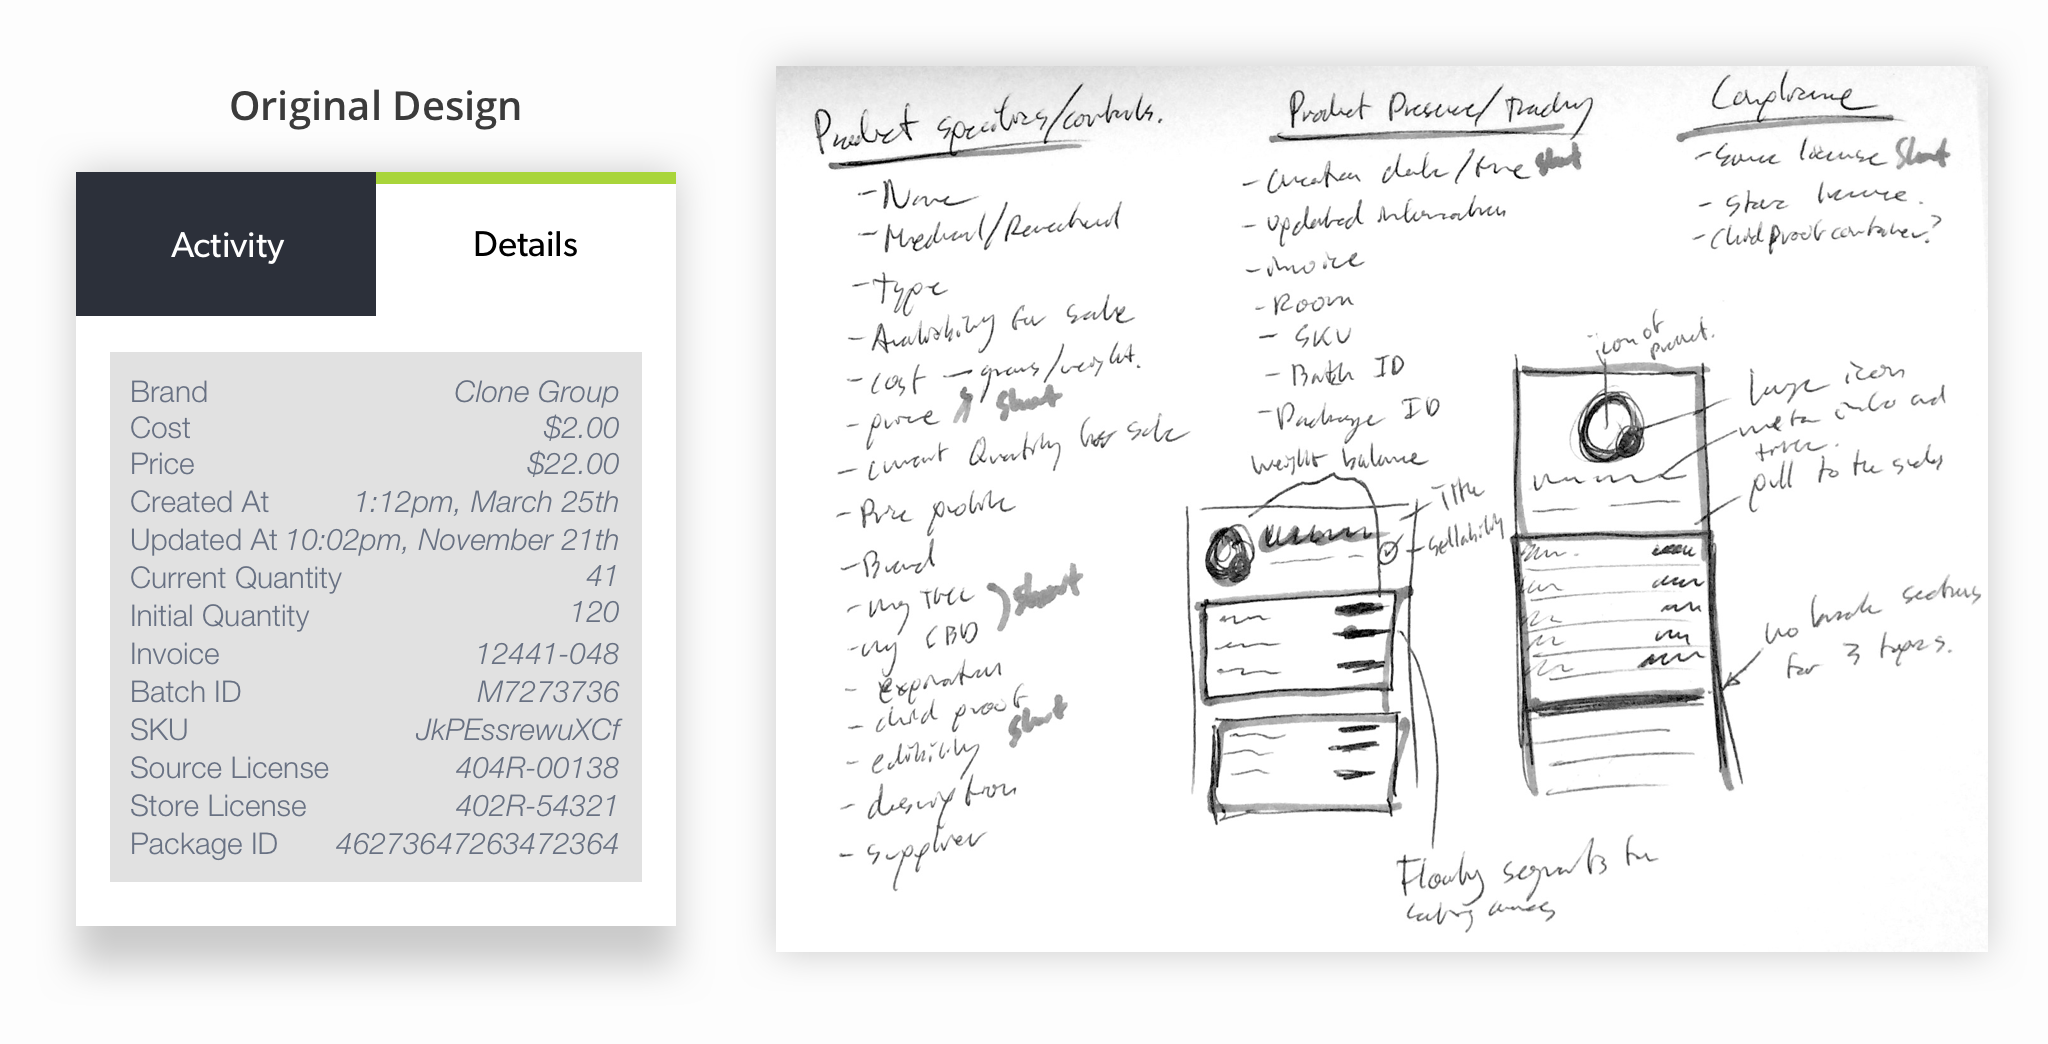 Original Design
Activity
Details
Brand Clone Group
Cost $2.00
Price $22.00
Created At 1:12pm, March 25th
Updated At 10:02pm, November 21th
Current Quantity 41
Initial Quantity 120
Invoice 12441-048
Batch ID M7273736
SKU JkPEssrewuXCf
Source License 404R-00138
Store License 402R-54321
Package ID 46273647263472364
Product specifics/controls.
- Name
- Medical/Recreational
- Type
- Availability for sale
- cost — grams/weight.
- price
- current Quantity for sale
- Price profile
- Brand
- mg THC
- mg CBD
- expiration
- child proof
- edibility
- description
- supplier
Product Presence/Tracking
- creation date/time
- updated information
- invoice
- Room
- SKU
- Batch ID
- Package ID
weight balance
Title
- sellability
Floaty segments for
Compliance
- source license
- store license.
- Child proof container?
icon of
product.
large icon
meta info and
title.
pull to the sides
no break sections
for 3 topics.